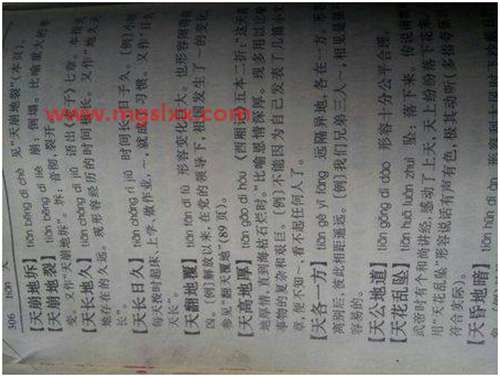 306 tiān 天
【天崩地坼】 tiān bēng dì chè 见"天崩地裂"(本页)。
【天崩地裂】 tiān bēng dì liè 崩：倒塌。比喻重大的事
变。又作"天崩地坼"。坼：音彻，裂开。
【天长地久】 tiān cháng dì jiǔ 语出《老子》七章。本指天
地存在的久远。现形容经历的时间长。又作"地久天
长"。
【天长日久】 tiān cháng rì jiǔ 时间长，日子久。[例]
每天按时起床、上学、做作业，～，就成了习惯。又作"日久
天长"。
【天翻地覆】 tiān fān dì fù 形容变化巨大。也形容闹得很
凶。[例]解放以来，在党的领导下，祖国发生了～的变化。
参见"翻天覆地"(89页)。
【天高地厚】 tiān gāo dì hòu 《西厢记》五本二折："这天高
地厚情，直到海枯石烂时。"比喻恩情深厚。现多用以比喻
事物的复杂和艰巨。[例]不能因为自己发表了几篇小文
章，便不知～，看不起任何人了。
【天各一方】 tiān gè yī fāng 远隔异地，各在一方。形容
离别后，彼此相距遥远。[例]我们兄弟三人～，相见是很不
容易的。
【天公地道】 tiān gōng dì dào 形容十分公平合理。
【天花乱坠】 tiān huā luàn zhuì 坠：落下来。传说南朝梁
武帝时有个和尚讲经，感动了上天，天上纷纷落下花来。
用"天花乱坠"形容说话有声有色，极其动听(多指夸张
符合实际)。
【天昏地暗】 tiān hūn dì àn
www.mgslxx.com